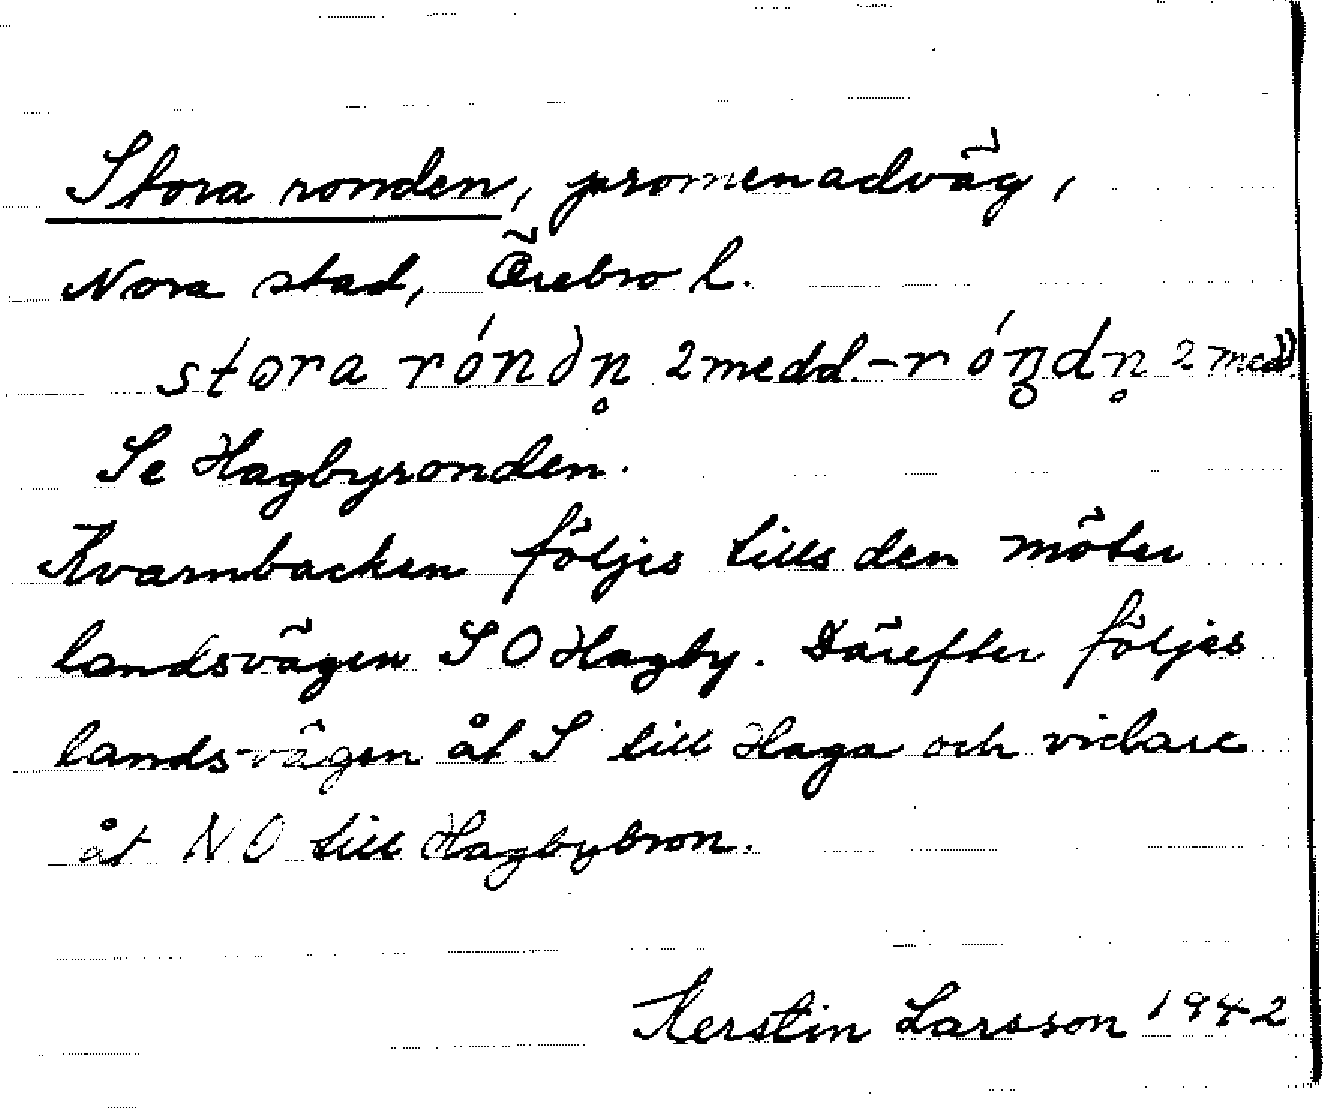 Stora ronden, promenadväg,
Nora stad, Örebro l.
stora róndn̥ 2 medd. - róŋdn̥ 2 medd.
Se Hagbyronden.
Kvarnbacken följes tills den möter
landsvägen S O Hagby. Därefter följes
landsvägen åt S till Haga och vidare
åt N O till Hagbybron.
Kerstin Larsson 1942